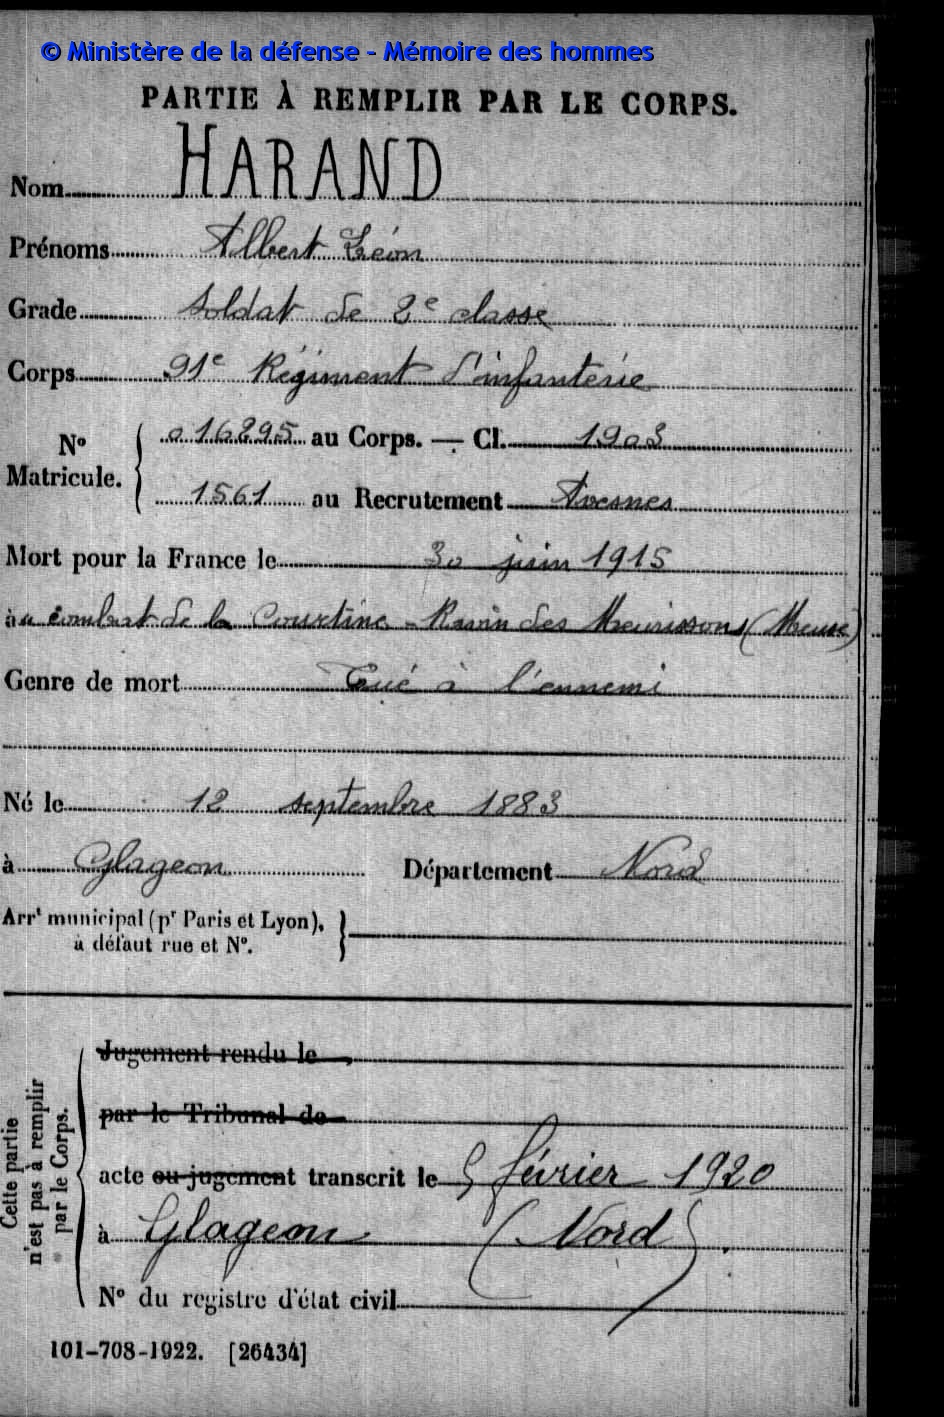 © Ministère de la défense - Mémoire des hommes
PARTIE À REMPLIR PAR LE CORPS.
Nom HARAND
Prénoms Albert Léon
Grade Soldat de 2e classe
Corps 91e Régiment d'infanterie
No Matricule. { 016295 au Corps. — Cl. 1903
1561 au Recrutement Avesnes
Mort pour la France le 30 juin 1915
au combat de la Courtine - Ravin des Meurissons (Meuse)
Genre de mort Tué à l'ennemi
Né le 12 septembre 1883
à Glageon Département Nord
Arrt municipal (pr Paris et Lyon),
à défaut rue et No.
Cette partie
n'est pas à remplir
par le Corps.
Jugement rendu le
par le Tribunal de
acte ou jugement transcrit le 5 février 1920
à Glageon (Nord)
No du registre d'état civil
101-708-1922. [26434]